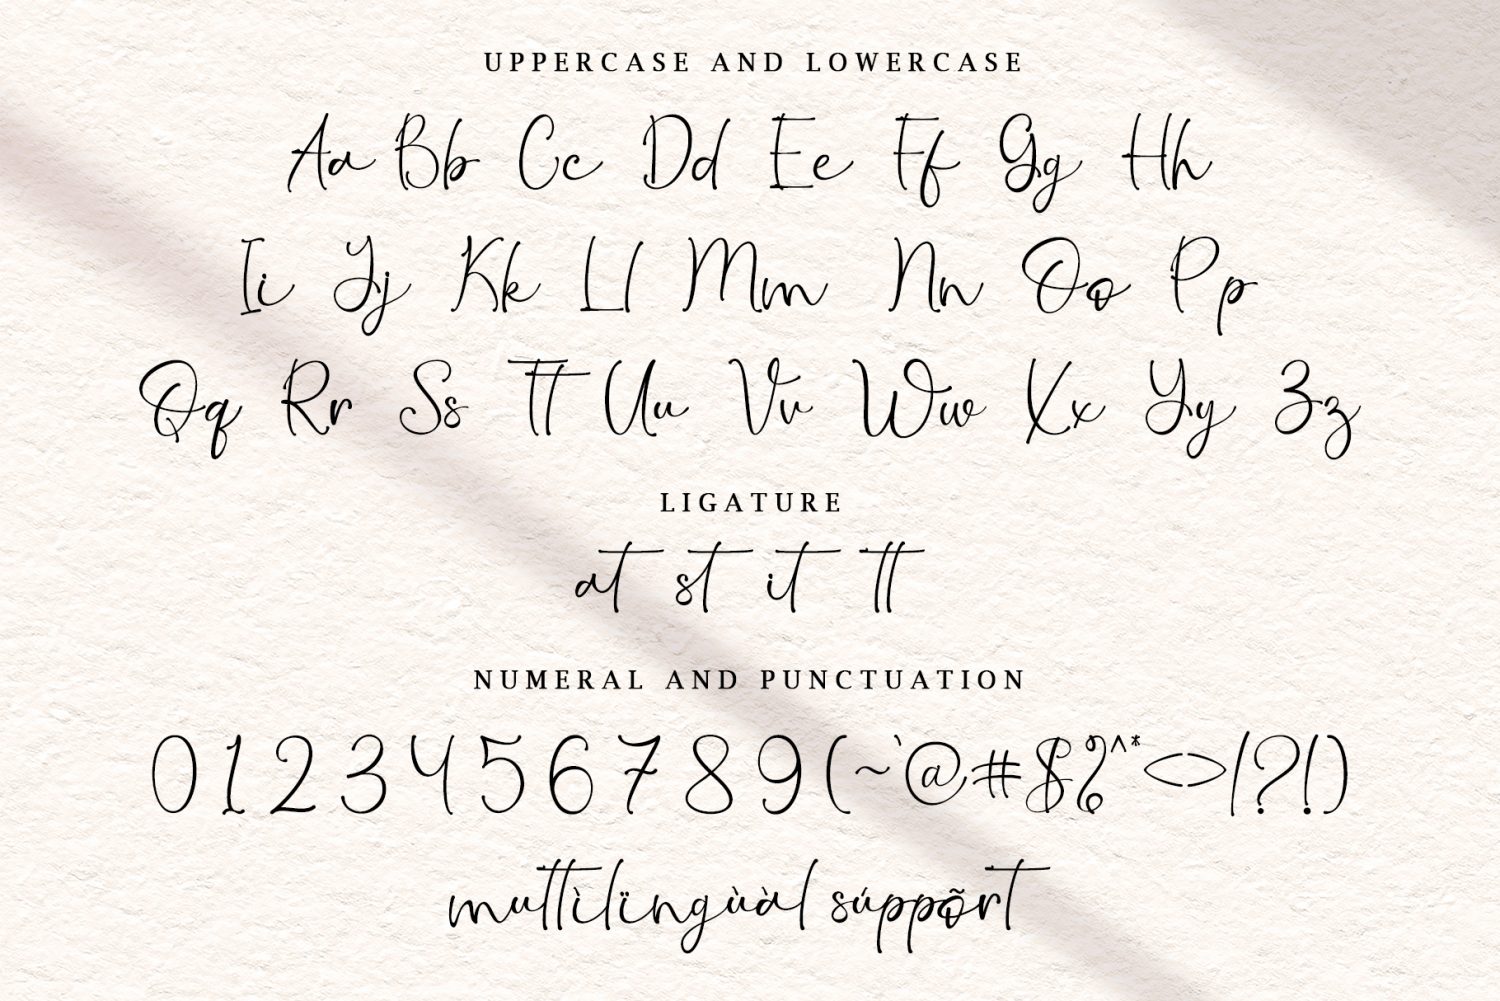 UPPERCASE AND LOWERCASE
Aa Bb Cc Dd Ee Ff Gg Hh
Ii Jj Kk Ll Mm Nn Oo Pp
Qq Rr Ss Tt Uu Vv Ww Xx Yy Zz
LIGATURE
at st it tt
NUMERAL AND PUNCTUATION
0123456789(~`@#$%^*<>/?!)
muttìlïngùàl súppõrt